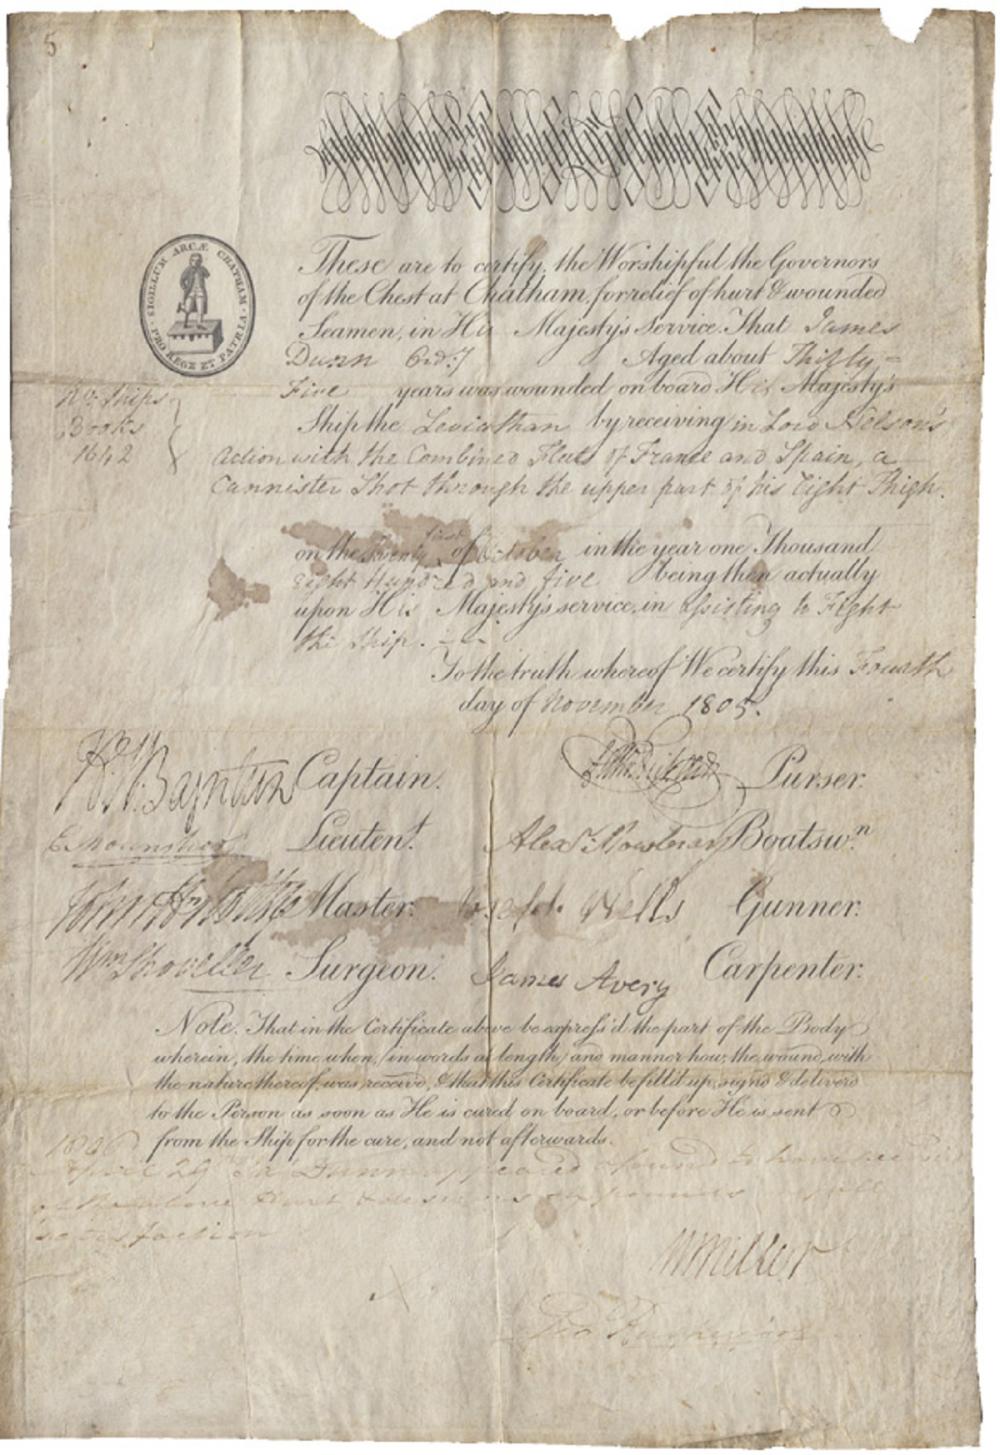 5
SIGILLUM ARCÆ CHATHAM · PRO REGE ET PATRIA ·
These are to certify, the Worshipful the Governors
of the Chest at Chatham, for relief of hurt & wounded
Seamen, in His Majesty's Service. That James
Dunn Ord.y Aged about Thirty =
Five years was wounded on board His Majesty's
No. Ships
Books
1642
Ship the Leviathan by receiving in Lord Nelson's
Action with the Combined Fleets of France and Spain, a
Cannister Shot through the upper part of his Right Thigh.
on the Twenty first of October in the year one Thousand
Eight Hundred and five being then actually
upon His Majesty's service, in assisting to Fight
the Ship.
To the truth whereof We certify this Fourth
day of November 1805.
H. W. Bayntun Captain. Purser.
Lieutent. Alexr. Boatswn.
John Master. Joseph Wells Gunner.
Wm Shoveller Surgeon. James Avery Carpenter.
Note. That in the Certificate above be express'd the part of the Body
wherein, the time when, (in words at length) and manner how, the wound, with
the nature thereof, was received, & that this Certificate be fill'd up, signd & deliverd
to the Person as soon as He is cured on board, or before He is sent
from the Ship for the cure, and not afterwards.
1806
April 29 Ja Dunn appeared & found to have
Hurt
satisfaction
W Miller